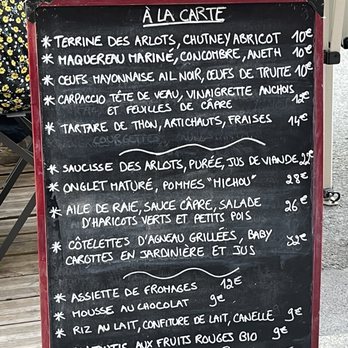 À LA CARTE
* TERRINE DES ARLOTS, CHUTNEY ABRICOT 10€
* MAQUEREAU MARINÉ, CONCOMBRE, ANETH 10€
* ŒUFS MAYONNAISE AIL NOIR, ŒUFS DE TRUITE 10€
* CARPACCIO TÊTE DE VEAU, VINAIGRETTE ANCHOIS
ET FEUILLES DE CÂPRE 12€
* TARTARE DE THON, ARTICHAUTS, FRAISES 14€
* SAUCISSE DES ARLOTS, PURÉE, JUS DE VIANDE 22€
* ONGLET MATURÉ, POMMES "MICHOU" 28€
* AILE DE RAIE, SAUCE CÂPRE, SALADE
D'HARICOTS VERTS ET PETITS POIS 26€
* CÔTELETTES D'AGNEAU GRILLÉES, BABY
CAROTTES EN JARDINIÈRE ET JUS 32€
* ASSIETTE DE FROMAGES 12€
* MOUSSE AU CHOCOLAT 9€
* RIZ AU LAIT, CONFITURE DE LAIT, CANELLE 9€
AUX FRUITS ROUGES BIO 9€